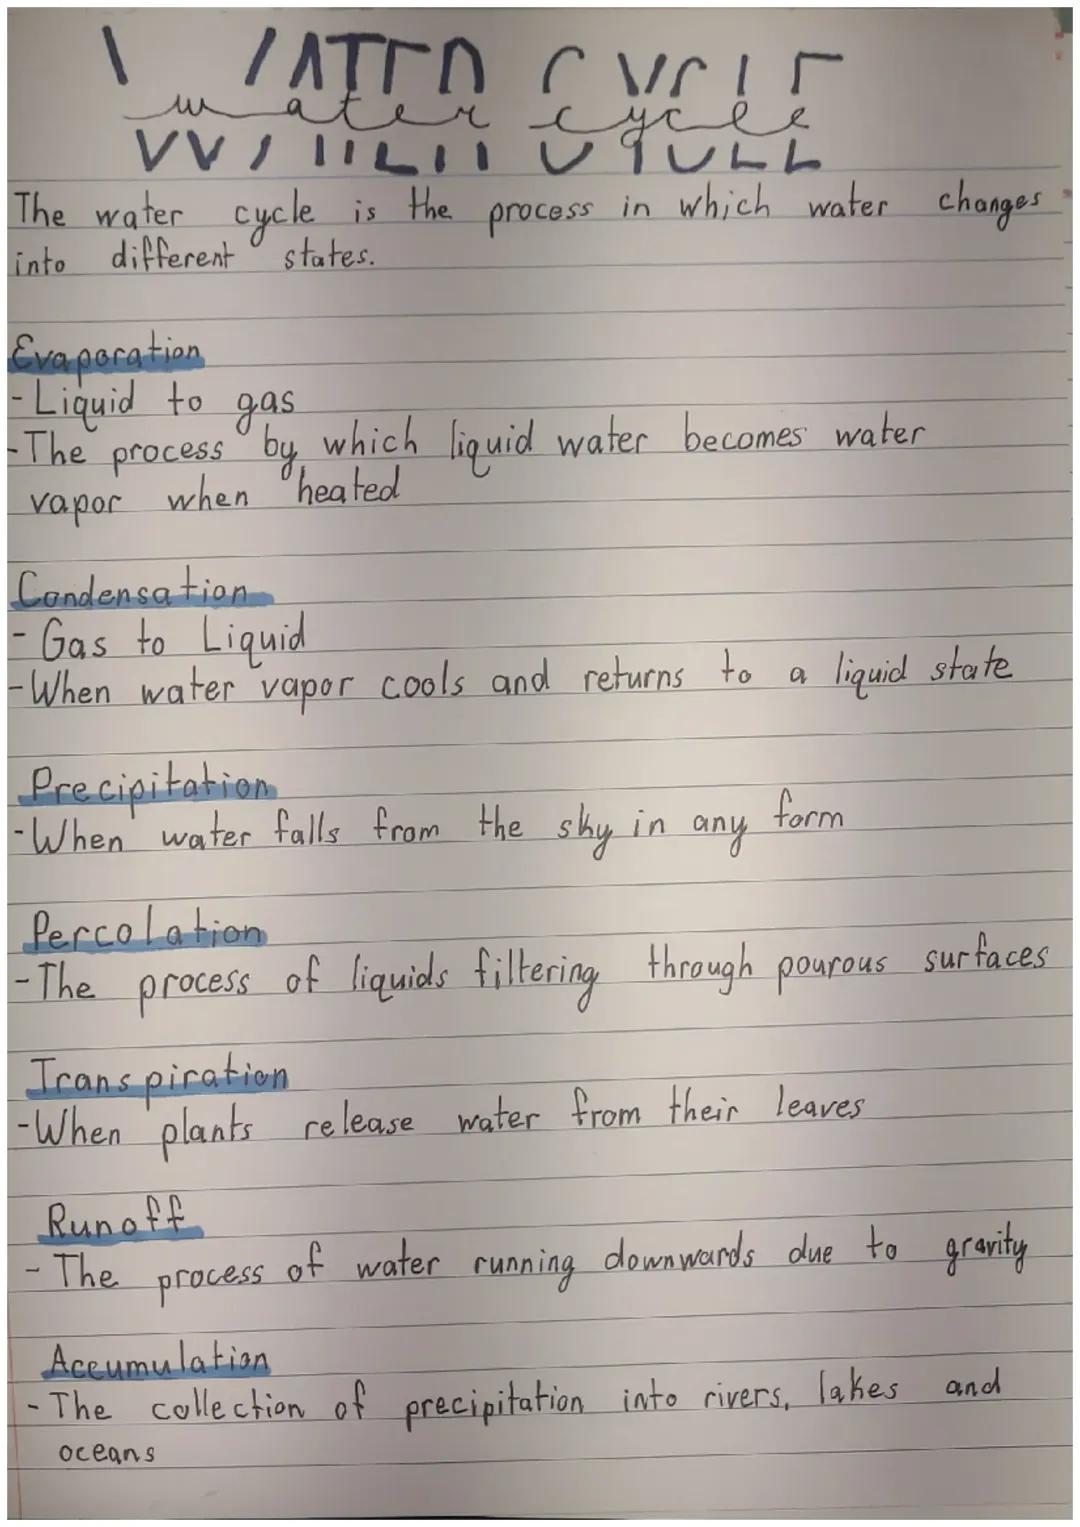 WATER CYCLE
water cycle
The water cycle is the process in which water changes
into different states.
Evaporation
- Liquid to gas
- The process by which liquid water becomes water
vapor when heated
Condensation
- Gas to Liquid
- When water vapor cools and returns to a liquid state
Precipitation
- When water falls from the sky in any form
Percolation
- The process of liquids filtering through pourous surfaces
Transpiration
- When plants release water from their leaves
Runoff
- The process of water running downwards due to gravity
Accumulation
- The collection of precipitation into rivers, lakes and
oceans